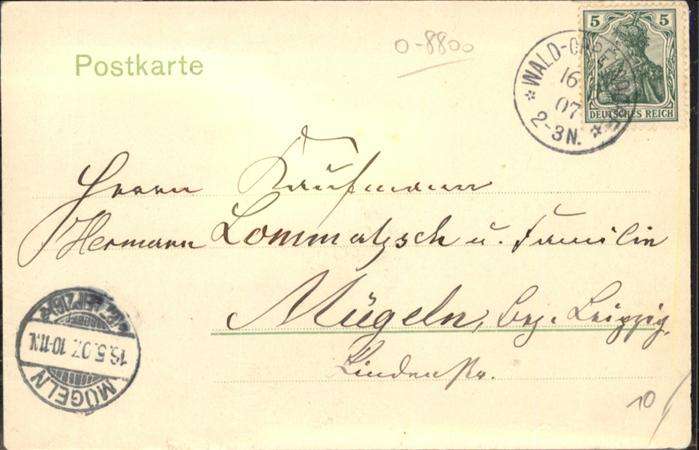 o-8800
5 5
DEUTSCHES REICH
Postkarte
16
07
2-3N.
Herrn Kaufmann
Hermann Lommatzsch u. Familie
Mügeln, bez. Leipzig,
Lindenstr.
16.5.07. 10-11.N.
MÜGELN
10